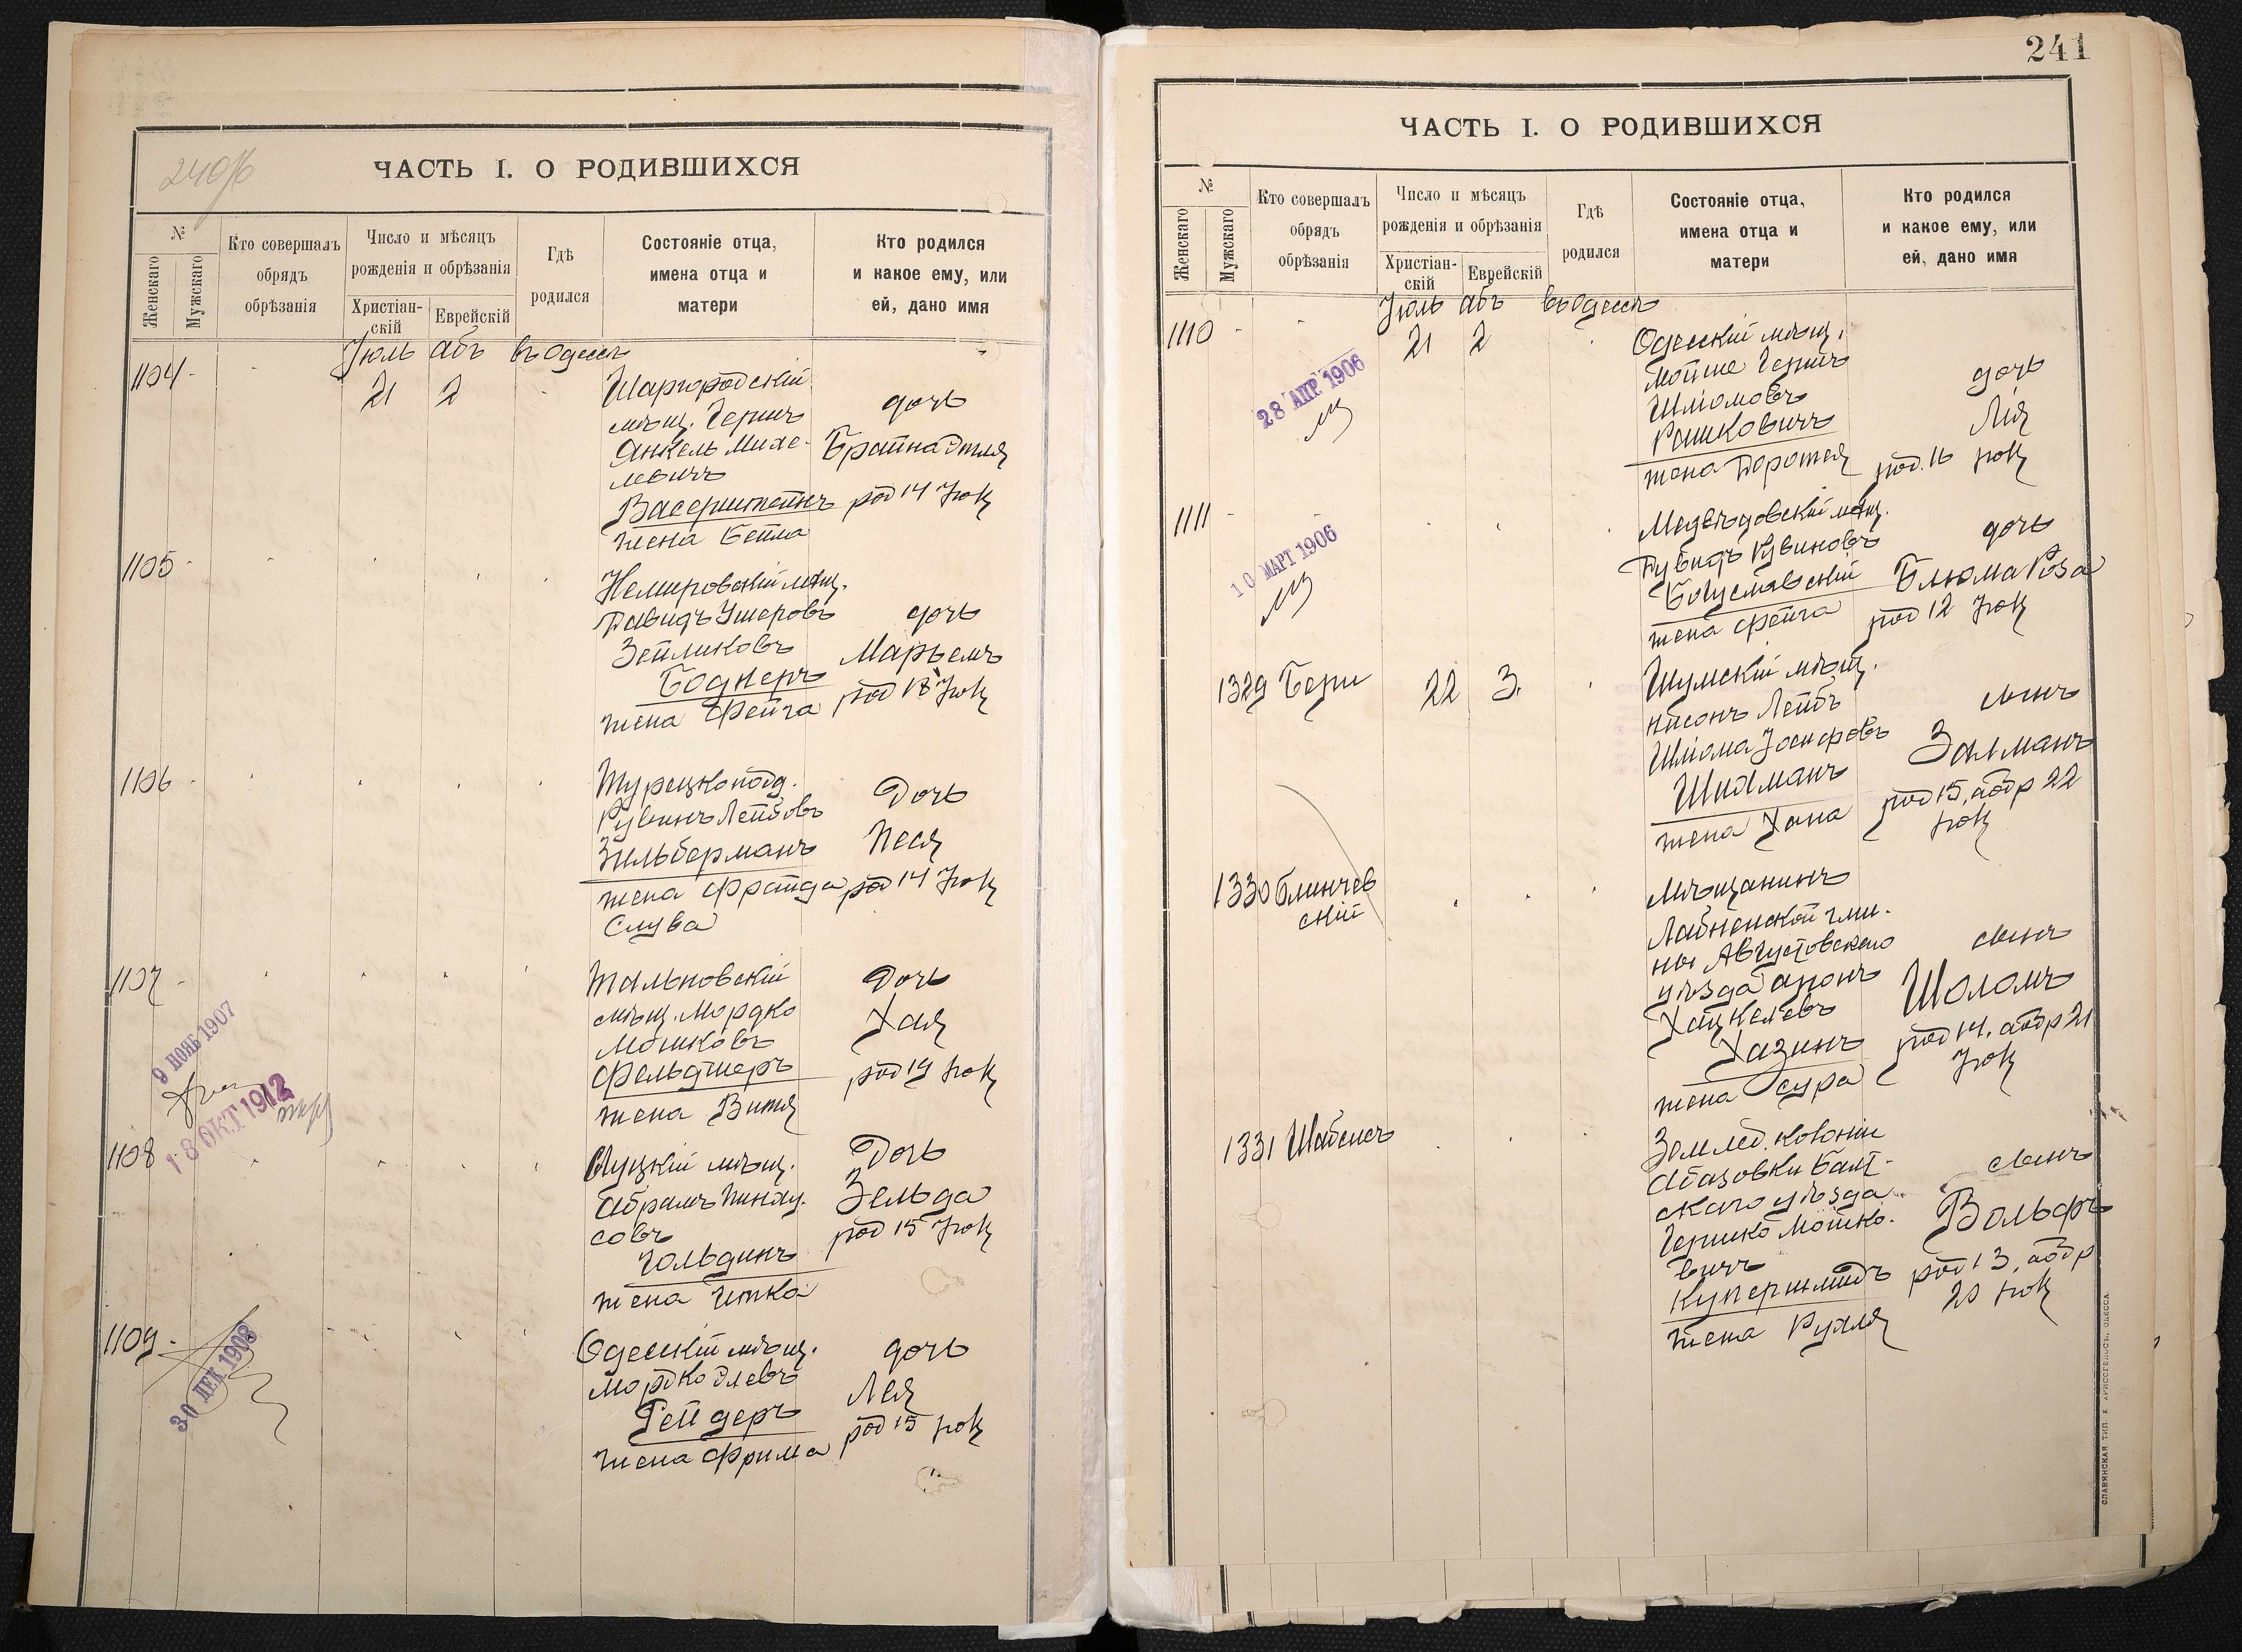 240об
ЧАСТЬ I. О РОДИВШИХСЯ
№
Женскаго
Мужскаго
Кто совершалъ
обрядъ
обрѣзанія
Число и мѣсяцъ
рожденія и обрѣзанія
Христіан-
скій
Еврейскій
Гдѣ
родился
Состояніе отца,
имена отца и
матери
Кто родился
и какое ему, или
ей, дано имя
Іюль Абъ въ Одессѣ
1104
21 2
Шаргородскій
мѣщ. Гершъ
Янкель Михе-
левичъ
Васерштейнъ
жена Бейла
дочь
Брайна Этля
род 14 Іюл
1105
Немировскій мѣщ.
Давидъ Ушеровъ
Зейликовъ
Боднеръ
жена Фейга
дочь
Марьемъ
род 18 Іюл
1106
Турецкопод.
Рувинъ Лейбовъ
Зильберманъ
жена Фрайда
Слува
Дочь
Песя
род 14 Іюл
1107
9 НОЯБ 1907
18 ОКТ 1912
Тальновскій
мѣщ. Мордко
Мошковъ
Фельдшеръ
жена Витя
Дочь
Хая
род 19 Іюл
1108
Слуцкій мѣщ.
Абрамъ Пинху-
совъ
Гольдинъ
жена Гитка
Дочь
Зельда
род 15 Іюл
1109
30 ДЕК 1908
Одесскій мѣщ.
Мордко Элевъ
Рейдеръ
жена Фрима
дочь
Лея
род 15 Іюл
241
ЧАСТЬ I. О РОДИВШИХСЯ
№
Женскаго
Мужскаго
Кто совершалъ
обрядъ
обрѣзанія
Число и мѣсяцъ
рожденія и обрѣзанія
Христіан-
скій
Еврейскій
Гдѣ
родился
Состояніе отца,
имена отца и
матери
Кто родился
и какое ему, или
ей, дано имя
Іюль Абъ въ Одессѣ
1110
21 2
28 АПР. 1906
Одесскій мѣщ.
Мойше Гершъ
Шліомовъ
Рашковичъ
жена Доротея
дочь
Лія
род. 16 Іюл
1111
10 МАРТ 1906
Медвѣдовскій мѣщ.
Дувидъ Рувиновъ
Богуславскій
жена Фейга
дочь
Блюма Роза
род 12 Іюл
1329 Бери
22 3
Шумскій мѣщ.
Нисонъ Лейбъ
Шліома Іосифовъ
Шидманъ
жена Хана
сынъ
Залманъ
род 15, абр 22
Іюл
1330 Блинчев
скій
Мѣщанинъ
Лабненской гми-
ны Августовскаго
уѣзда Аронъ
Хацкелевъ
Хазинъ
жена Сура
сынъ
Шоломъ
род 14, абр 21
Іюл
1331 Шабсисъ
Землед. колоніи
Абазовки Балт-
скаго уѣзда
Гершко Мошко-
вичъ
Купершмидъ
жена Рухля
сынъ
Вольфъ
род 13, абр
20 Іюл
СЛАВЯНСКАЯ ТИП. Е. ХРИСОГЕЛОСЪ, ОДЕССА.